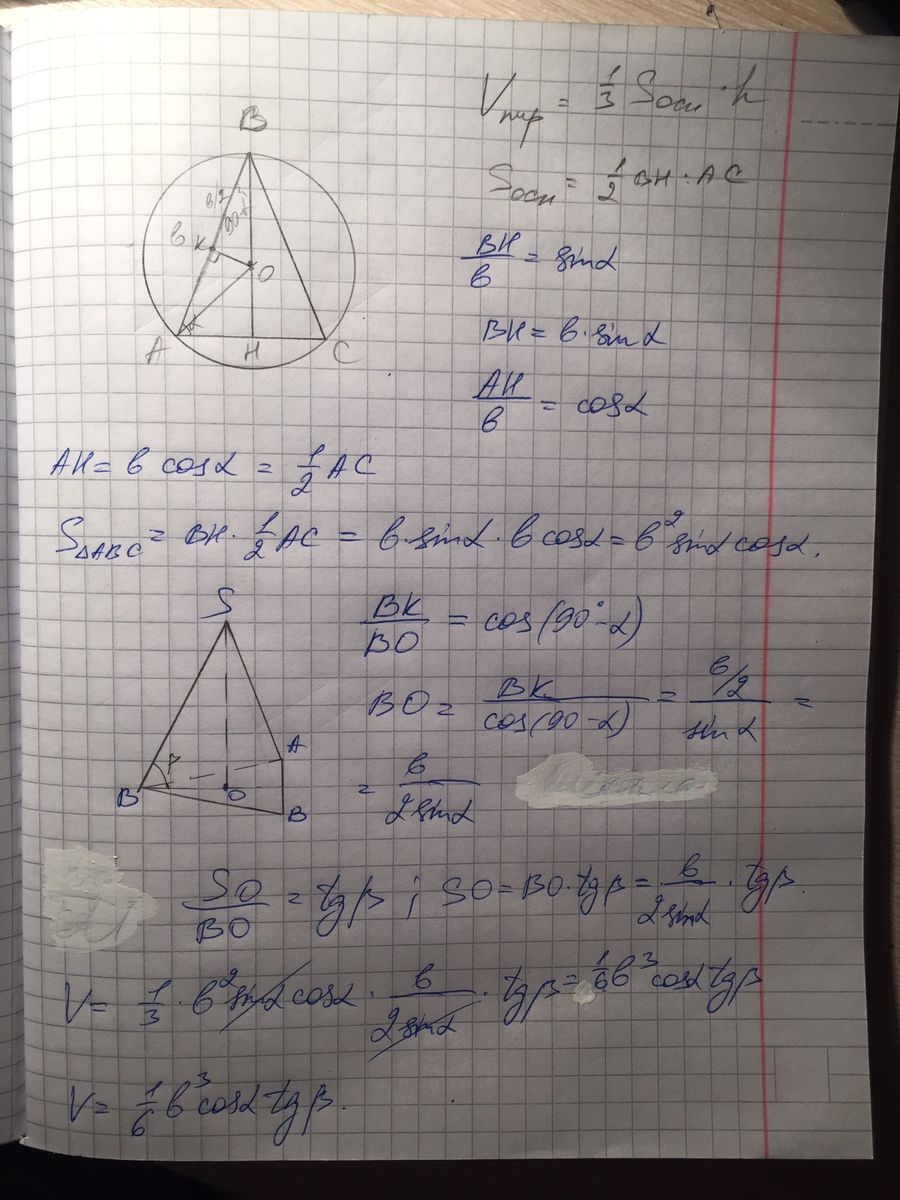 V пир = 1/3 Sосн · h
Sосн = 1/2 BH · AC
BH/в = sinα
BH = в · sinα
AH/в = cosα
B
в/2
90-α
в
K
O
α
A
H
C
AH = в cosα = 1/2 AC
S△ABC = BH · 1/2 AC = в · sinα · в cosα = в² sinα cosα.
S
β
B
O
A
B
BK/BO = cos(90° - α)
BO = BK/cos(90-α) = в/2/sinα =
= в/2sinα
SO/BO = tgβ ; SO = BO · tgβ = в/2sinα · tgβ.
V = 1/3 · в² sinα cosα · в/2sinα · tgβ = 1/6 в³ cosα tgβ
V = 1/6 в³ cosα tgβ.